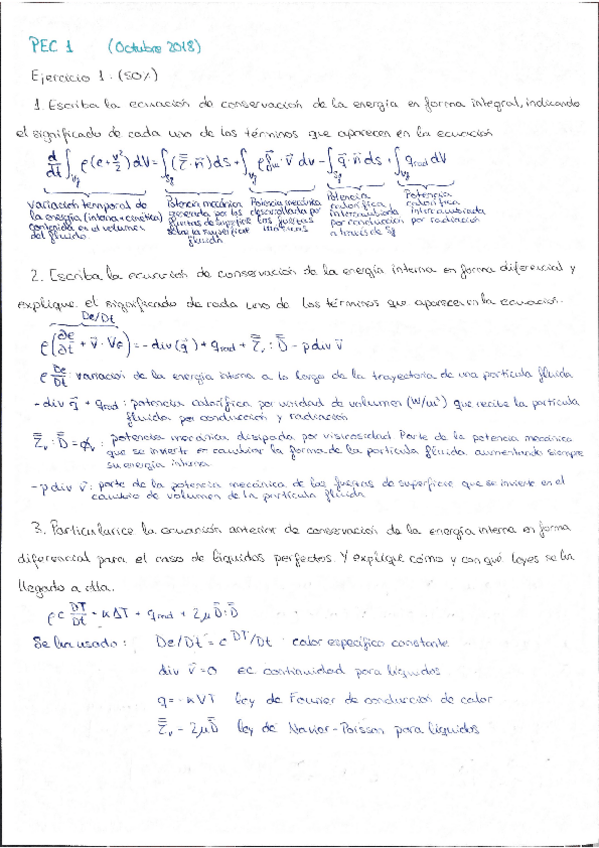 PEC 1 (Octubre 2018)
Ejercicio 1. (50%)
1. Escriba la ecuación de conservación de la energía en forma integral, indicando
el significado de cada uno de los términos que aparecen en la ecuación
d/dt ∫_Vf ρ(e+v²/2)dV = ∫_Sf (τ̿·n̄)ds + ∫_Vf ρf̄m·v̄ dv - ∫_Sf q̄·n̄ ds + ∫_Vf q̇rad dV
variación temporal de la energía (interna+cinética) contenida en el volumen del fluido
Potencia mecánica generada por las fuerzas de superficie sobre la superficie fluida
Potencia mecánica desarrollada por las fuerzas másicas
Potencia calorífica intercambiada por conducción a través de Sf
Potencia calorífica intercambiada por radiación
2. Escriba la ecuación de conservación de la energía interna en forma diferencial y
explique el significado de cada uno de los términos que aparecen en la ecuación.
De/Dt
ρ(∂e/∂t + v̄·∇e) = -div(q̄) + q̇rad + τ̿v : D̿ - p div v̄
ρ De/Dt : variación de la energía interna a lo largo de la trayectoria de una partícula fluida
- div q̄ + q̇rad : potencia calorífica por unidad de volumen (W/m³) que recibe la partícula
fluida por conducción y radiación
τ̿v : D̿ = ϕv : potencia mecánica disipada por viscosidad Parte de la potencia mecánica
que se invierte en cambiar la forma de la partícula fluida aumentando siempre
su energía interna
- p div v̄ : parte de la potencia mecánica de las fuerzas de superficie que se invierte en el
cambio de volumen de la partícula fluida
3. Particularice la ecuación anterior de conservación de la energía interna en forma
diferencial para el caso de líquidos perfectos. Y explique cómo y con qué leyes se ha
llegado a ella.
ρc DT/Dt = κΔT + q̇rad + 2μD̿:D̿
Se ha usado: De/Dt = c DT/Dt calor específico constante
div v̄ = 0 EC continuidad para líquidos
q = -κ∇T Ley de Fourier de conducción de calor
τ̿v - 2μD̿ Ley de Navier-Poisson para líquidos